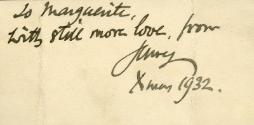 To Marguerite,
with still more love, from
Xmas 1932.